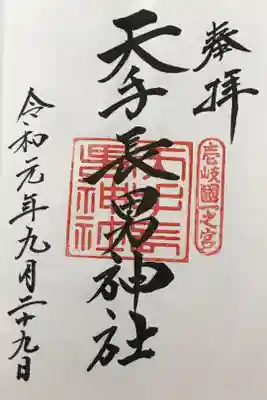 奉拝
壱岐國一之宮
天手長男神社
令和元年九月二十九日